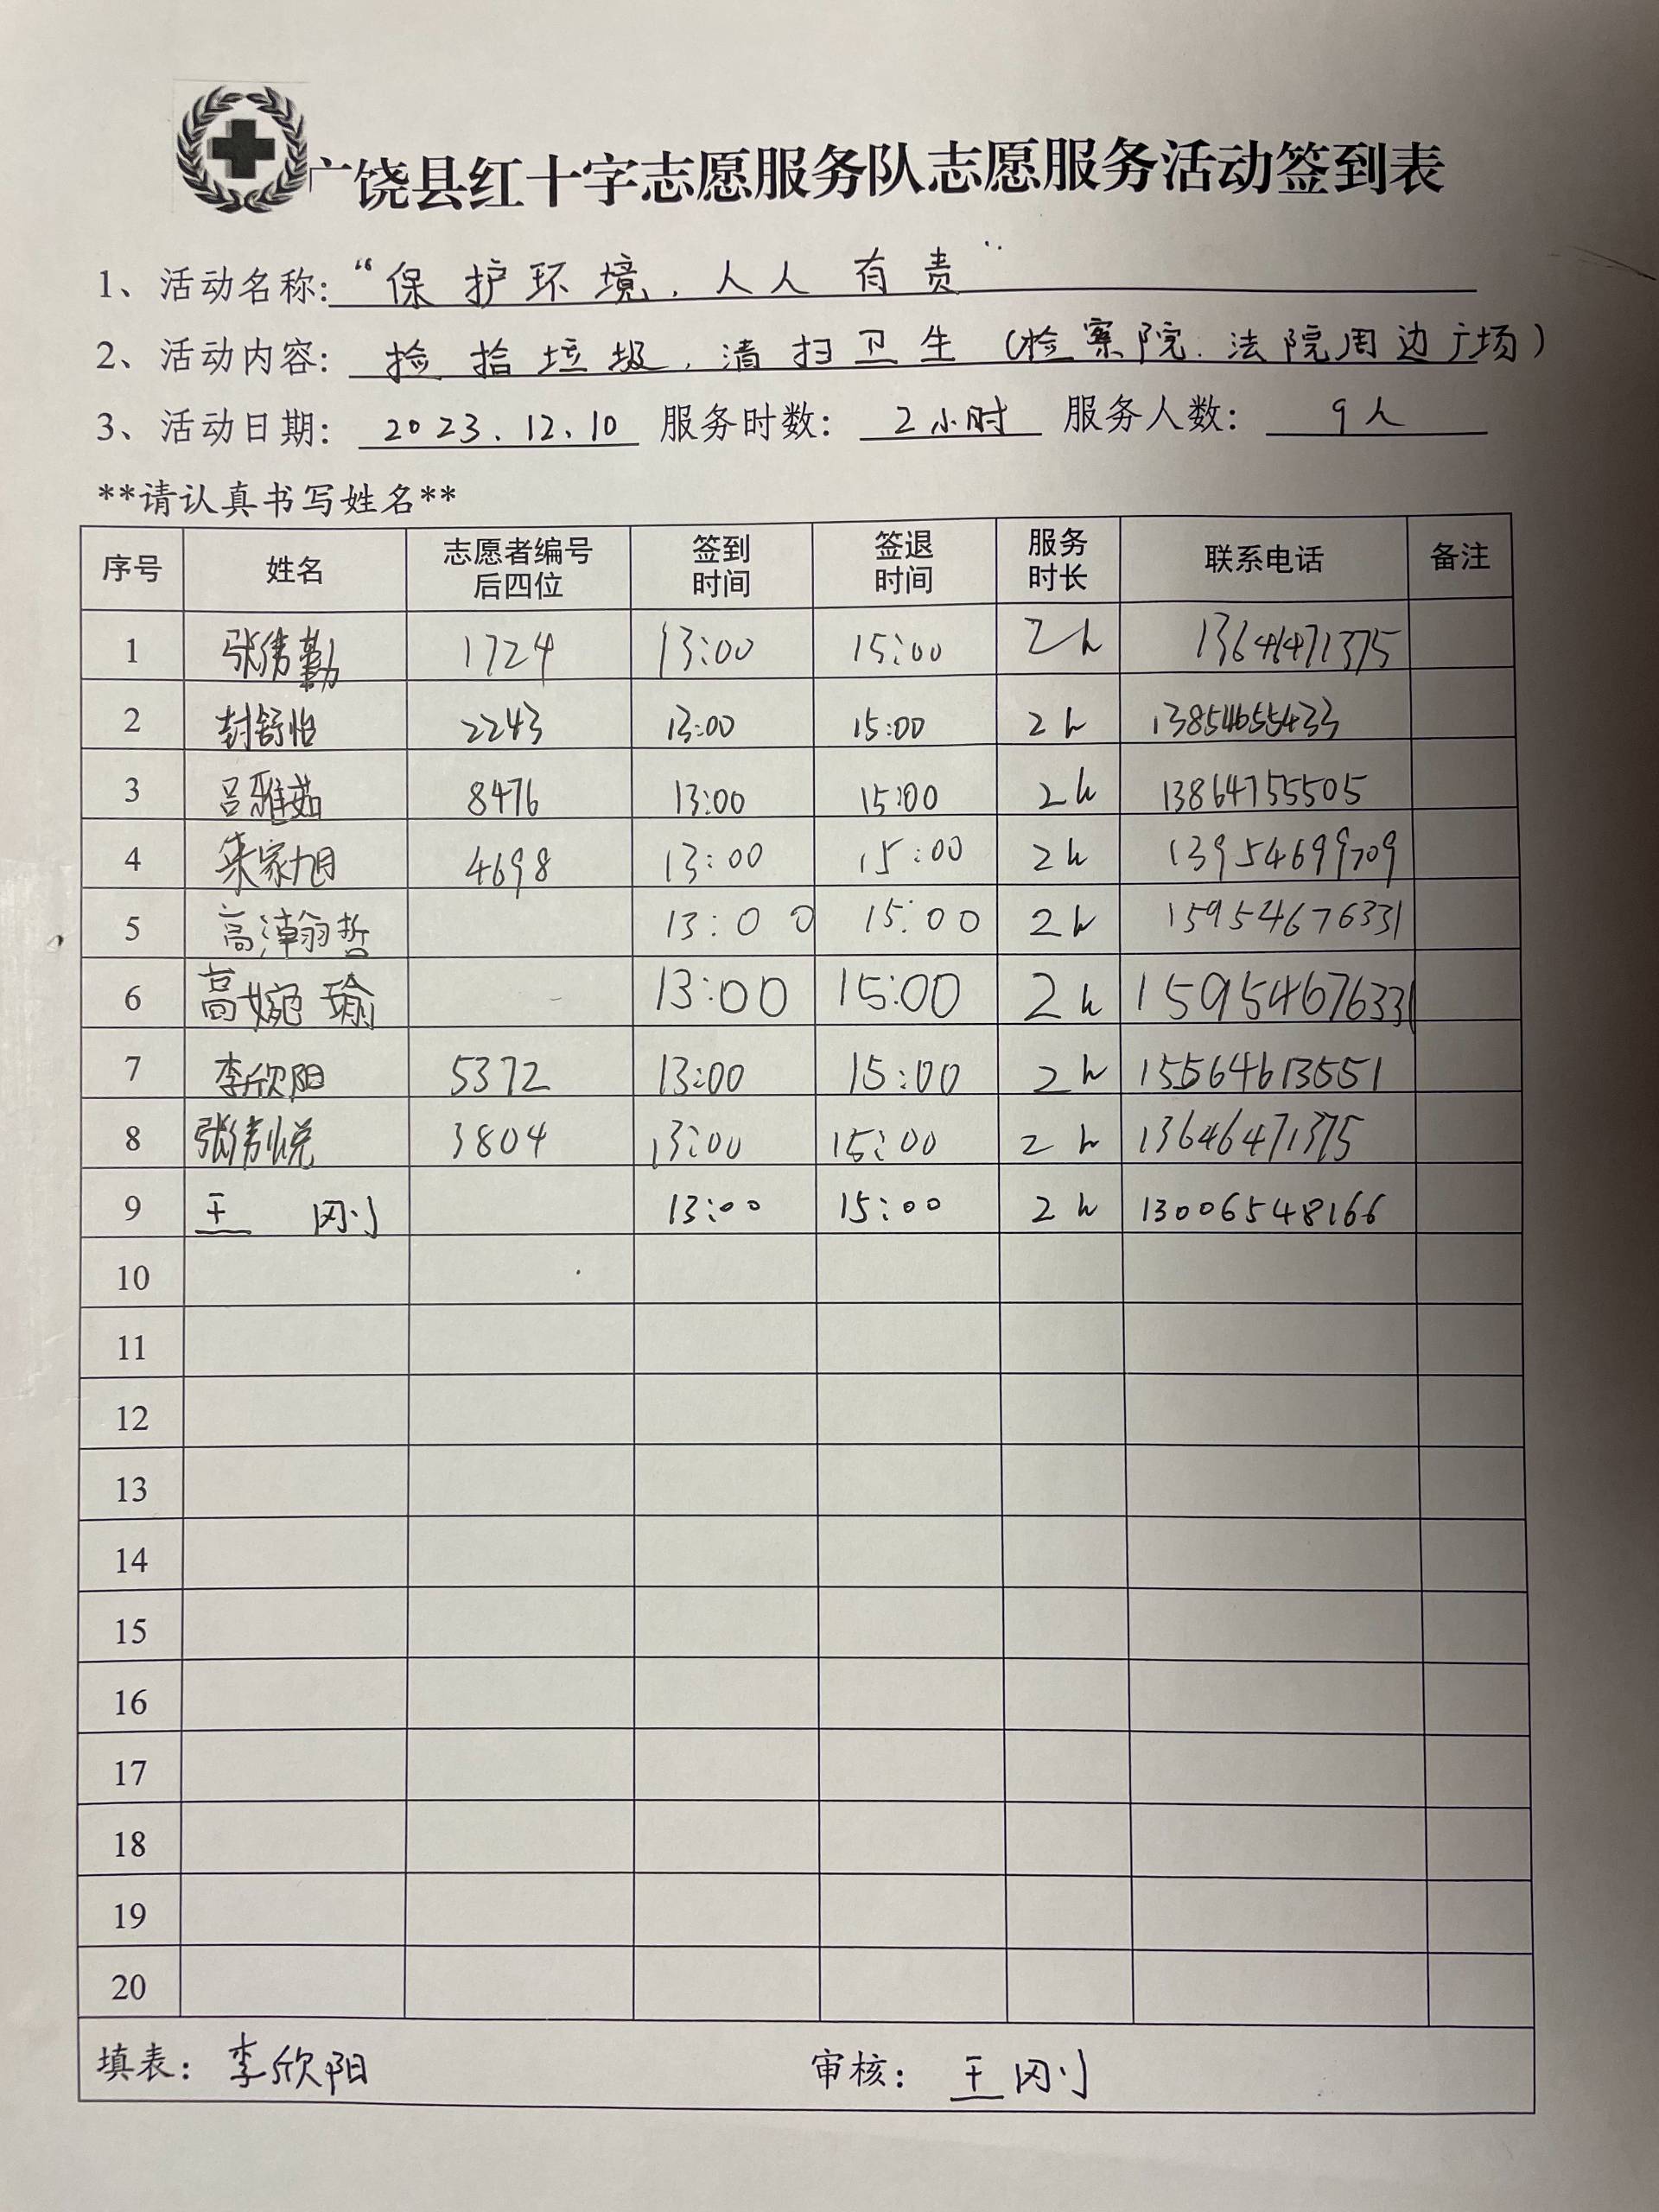 广饶县红十字志愿服务队志愿服务活动签到表
1、活动名称:“保护环境,人人有责”
2、活动内容: 捡拾垃圾,清扫卫生(检察院.法院周边广场)
3、活动日期: 2023.12.10 服务时数: 2小时 服务人数: 9人
**请认真书写姓名**
序号 姓名 志愿者编号后四位 签到时间 签退时间 服务时长 联系电话 备注
1 张倩勤 1724 13:00 15:00 2h 13646471375
2 封舒怡 2243 13:00 15:00 2h 13854655433
3 吕雅茹 8476 13:00 15:00 2h 13864755505
4 朱家旭 4698 13:00 15:00 2h 13954699709
5 高瀚哲 13:00 15:00 2h 15954676331
6 高婉瑜 13:00 15:00 2h 15954676331
7 李欣阳 5372 13:00 15:00 2h 15564613551
8 张倩悦 3804 13:00 15:00 2h 13646471375
9 王刚 13:00 15:00 2h 13006548166
10
11
12
13
14
15
16
17
18
19
20
填表: 李欣阳 审核: 王刚